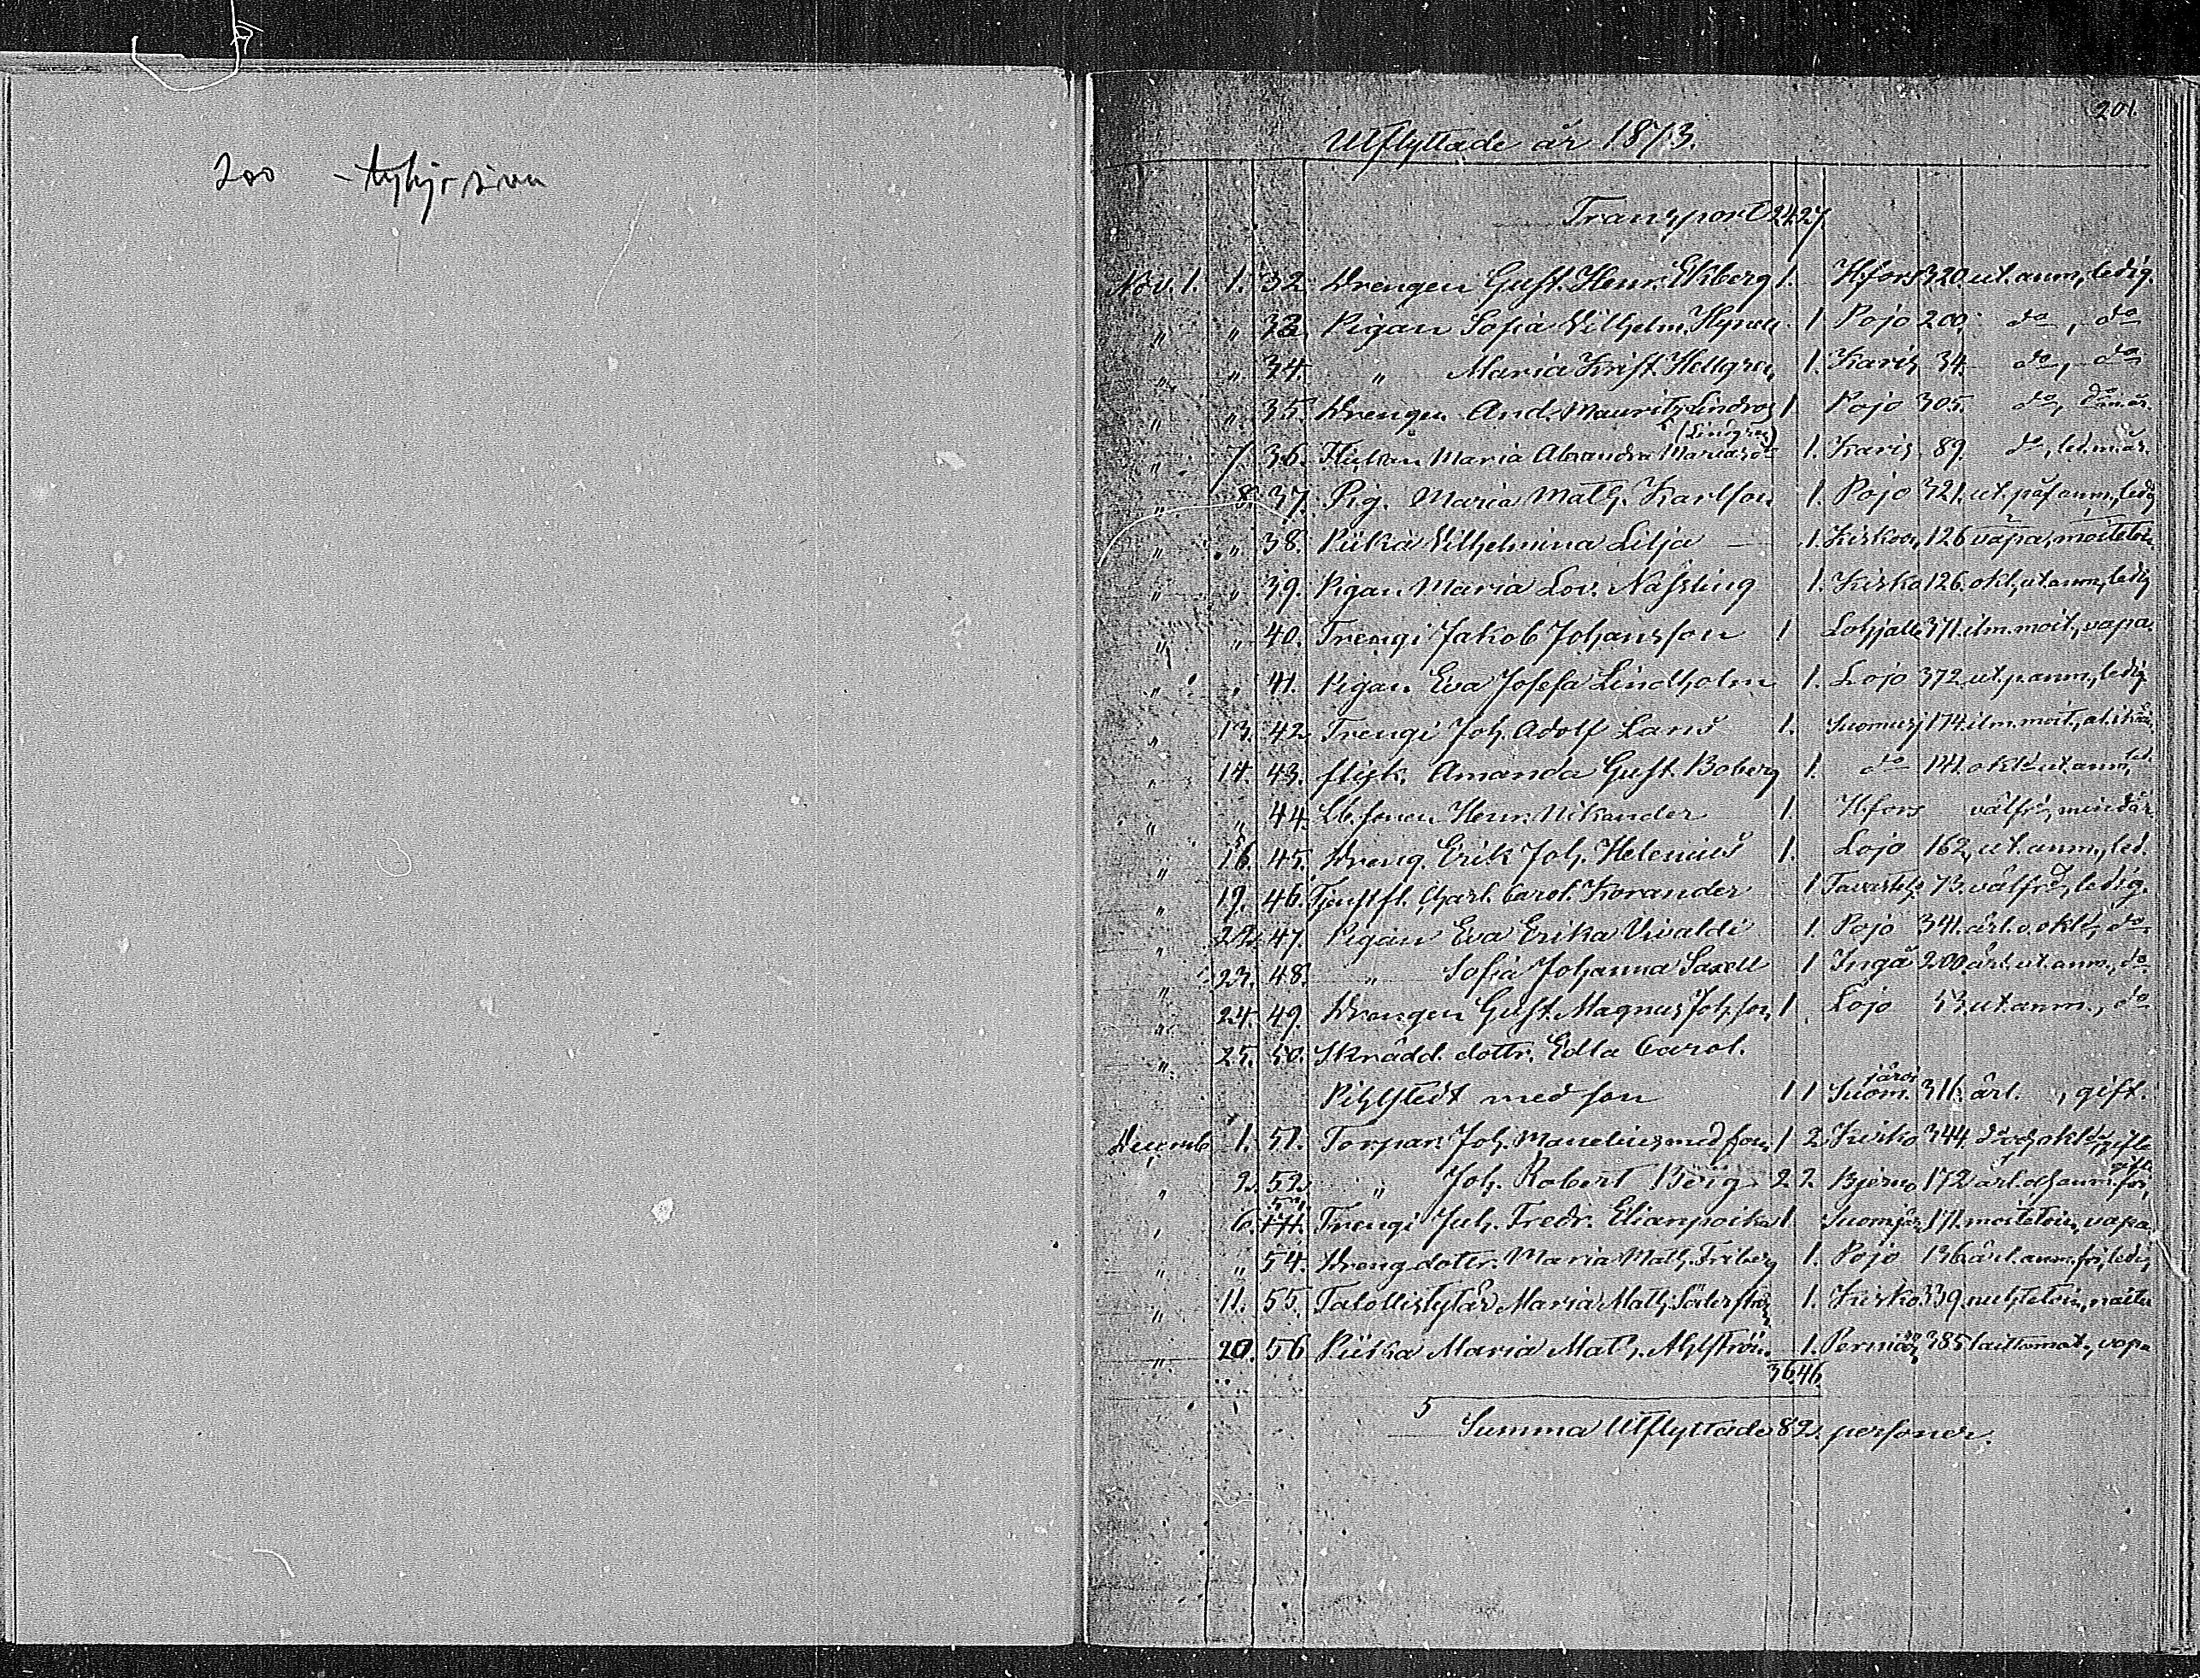 200 - tyhjä sivu
201.
Utflyttade år 1873.
Transport 24 27.
Nov. 1. 1. 32. Drengen Gust. Henr. Ekberg 1. Hfors 320. ut. anm., ledig.
" " 33. Pigan Sofia Vilhelm. Hynen 1. Pojo 200. do, do
" " 34. " Maria Krist. Hellgren 1. Karis 34. do, do
" " 35. Drengen And. Mauritz Lindros 1 Pojo 305. do, do m. år.
(Lindgren)
" 7. 36. Flickan Maria Alexandra 1. Karis 89. do, led. m. år.
" 8. 37. Pig. Maria Math. Karlson 1. Pojo 321. ut. påf. anm., ledig
" " 38. Piika Vilhelmina Lilja 1. Kiskoon 126 vapa, moiteton
" " 39. Pigan Maria Lov. Nassling 1. Kisko 126. okl., ut. anm., ledig
" " 40. Trengi Jakob Johansson 1 Lohjalle 371. ilm. moit., vapa.
" " 41. Pigan Eva Josefa Lindholm 1. Lojo 372. ut. p. anm., ledig
" 13. 42. Trengi Joh. Adolf Lans 1. Suomusj 174. ilm. moit.,
" 14. 43. flick. Amanda Gust. Boberg 1. do 141. okld ut. anm., led.
" " 44. Henr. Nikander 1. Hfors välfr., mindår
" 16. 45. Dreng. Erik Joh. Helenius 1. Lojo 162. ut. anm., led.
" 19. 46. Tjenstfl. Charl. Carol. Korander 1 Tavasteh. 73. välfrd, ledig.
" 22. 47. Pigan Eva Erika Vivaldi 1. Pojo 341. ärl. o. okld, do
" 23. 48. " Sofia Johanna Saxell 1 Ingå 200. ärl. ut. anm., do
" 24. 49. Drengen Gust. Magnus Joh. son 1. Lojo 53. ut. anm., do
" 25. 50. Skrädd. dottr. Edla Carol.
Pihlstedt med son 1 1 Suom. järvi 316. ärl., gift.
Decemb. 1. 51. Torpar. Joh. Manelius med fam. 1 2. Kisko 344. do och okld, gifte
" 2. 52. " Joh. Robert Börig 2 2. Bjerno 172 ärl. och anm. fri, gift
" 6. 53. Trengi Juh. Fredr. Elianpoika 1 Suomjär. 171. moiteton, vapa
" " 54. Dreng. dottr. Maria Math. Friberg 1. Pojo 136 ärl. anm. fri, ledig
" 11. 55. Talollistytär Maria Math. Söderström 1. Kisko. 339. nuhteton, naitu
" 20. 56 Piika Maria Math. Ahlström 1. Perniöön 385 laittamat., vapa
36 46
Summa Utflyttade 82. personer.